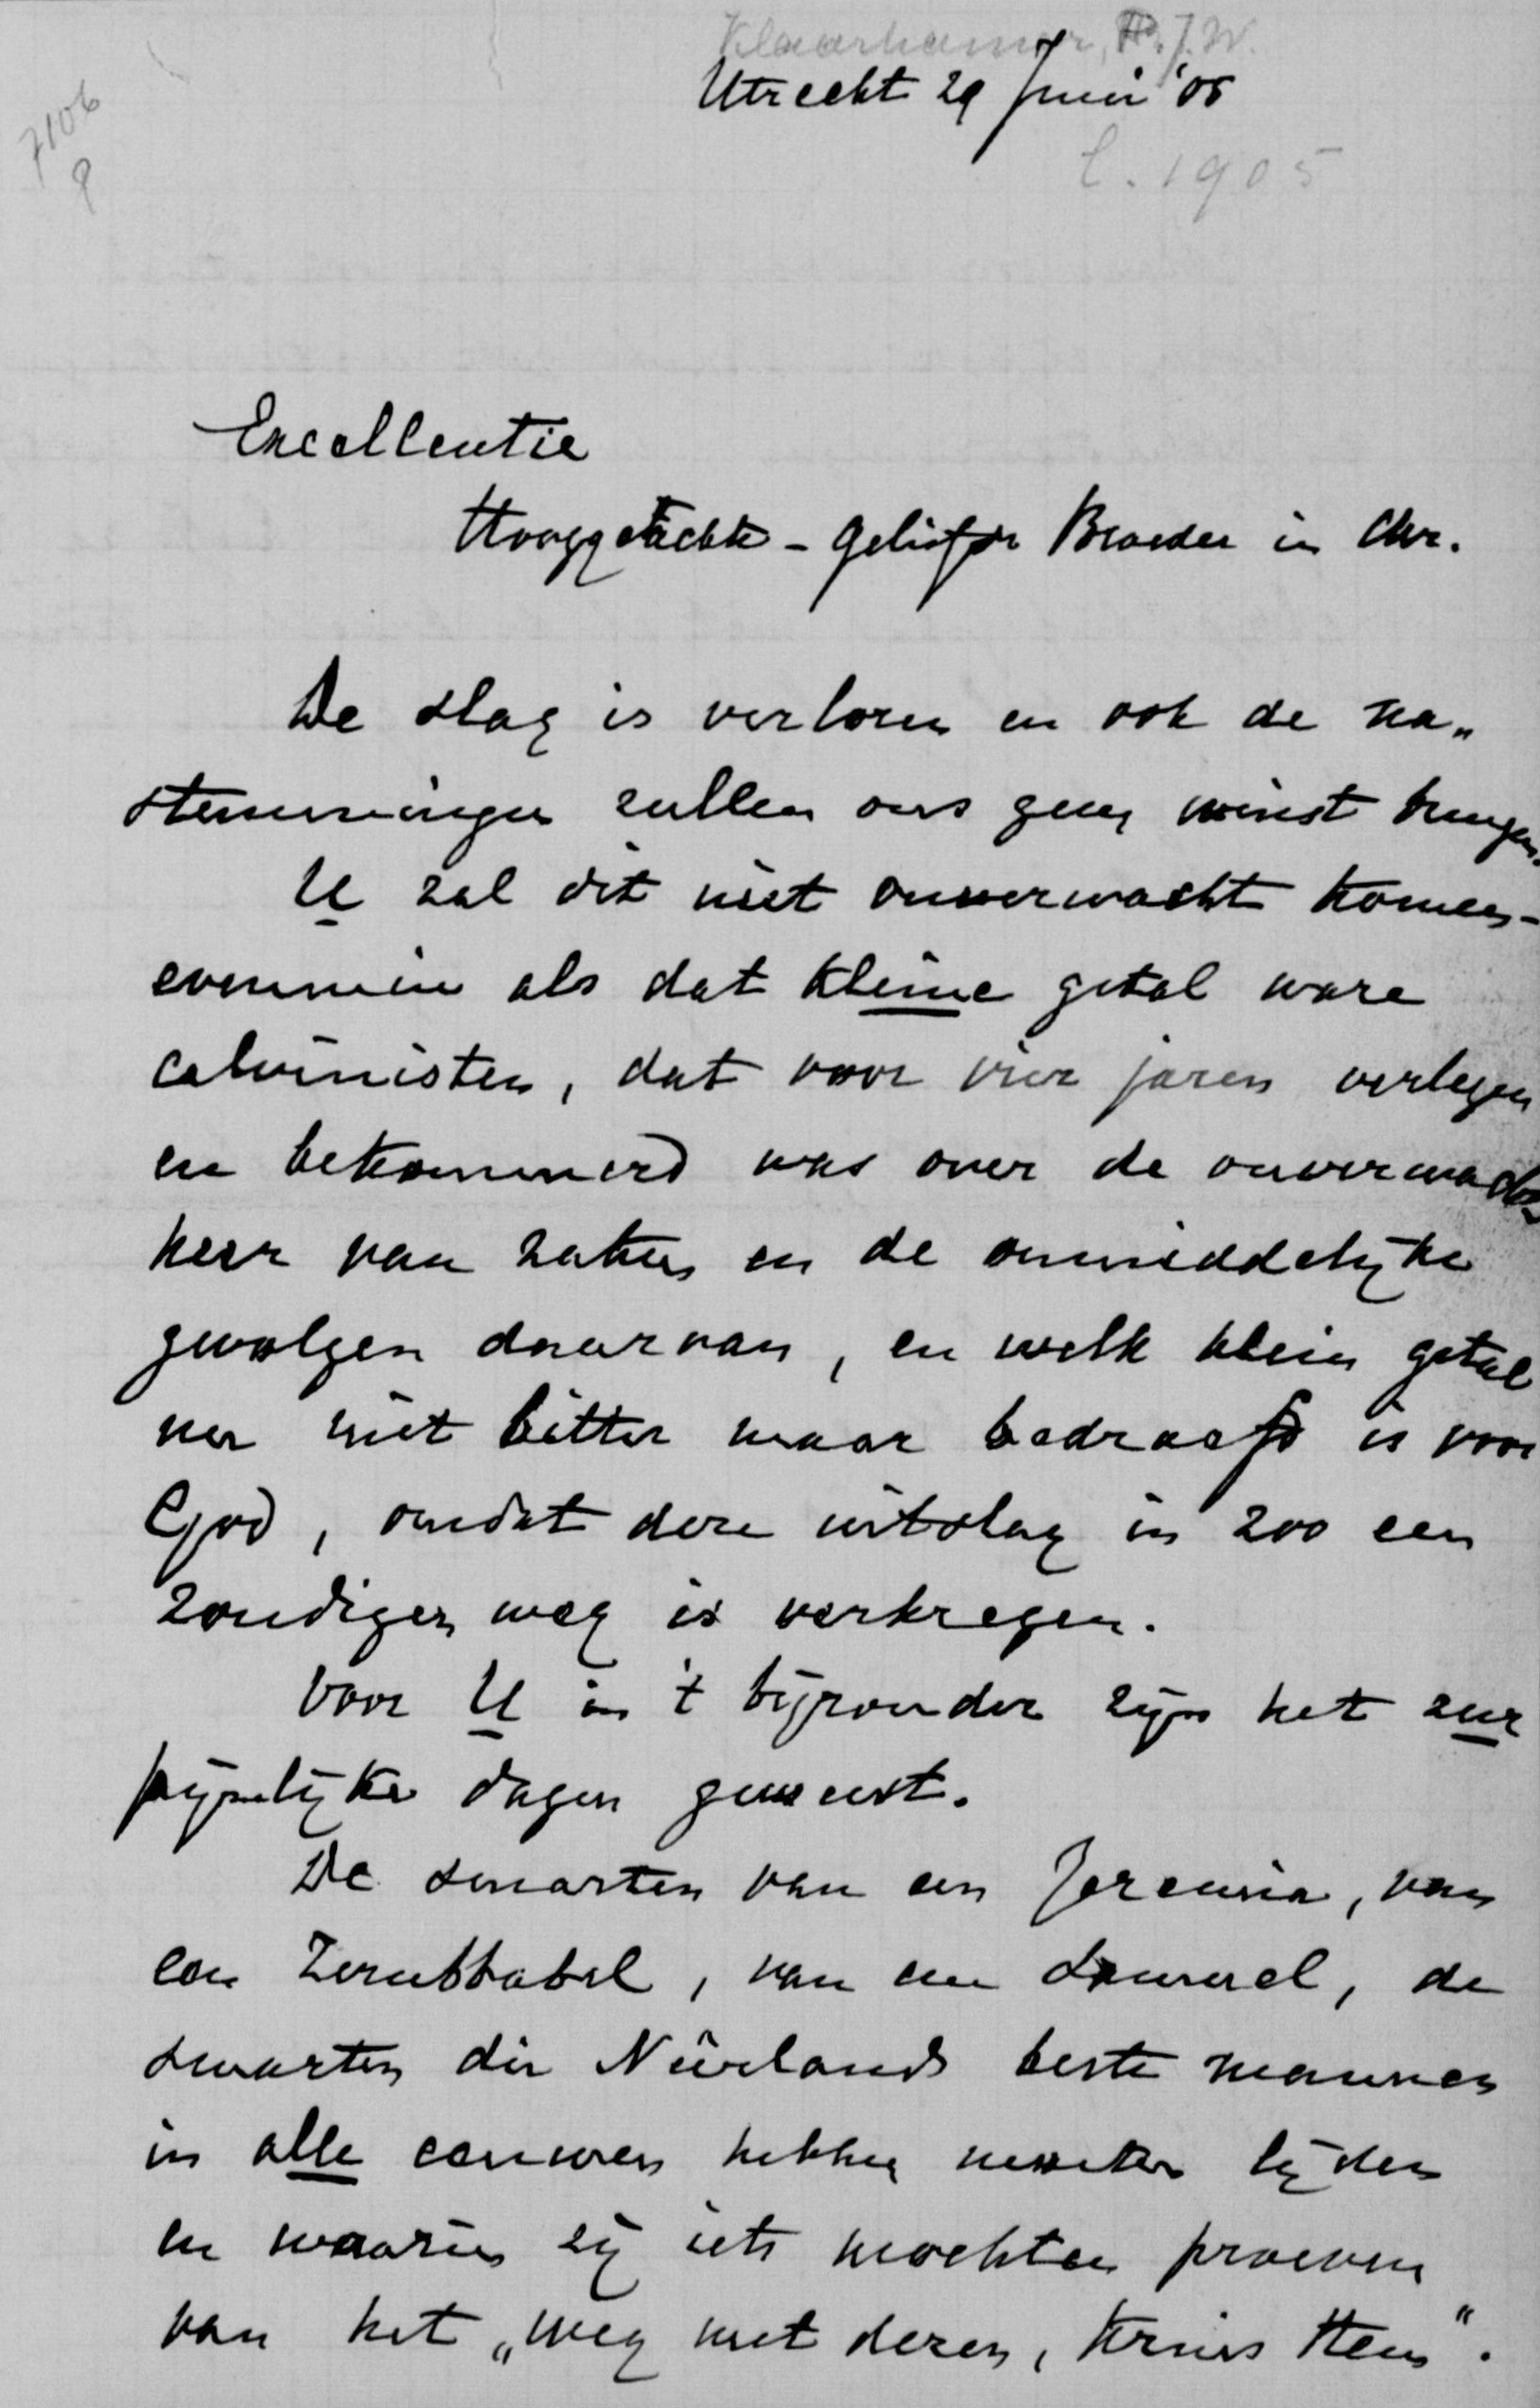 Klaarhamer, P. J. W.
Utrecht 29 Juni '05
7106
9
C. 1905
Excellentie
Hooggeachte - Geliefde Broeder in Chr.
De slag is verloren en ook de na„
stemmingen zullen ons geen winst brengen.
U zal dit niet onverwacht komen -
evenmin als dat kleine getal ware
calvinisten, dat voor vier jaren verlegen
en bekommerd was over de onverwachte
keer van zaken en de onmiddelyke
gevolgen daarvan, en welk klein getal
nu niet bitter maar bedroefd is voor
God, omdat deze uitslag in zoo een
zondigen weg is verkregen.
Voor U in 't byzonder zyn het zeer
pijnelyke dagen geweest.
De smarten van een Jeremia, van
een Zerubbabel, van een Samuel, de
smarten die Neerlands beste mannen
in alle eeuwen hebben moeten lyden
en waarin zy iets mochten proeven
van het „weg met dezen, kruis Hem".